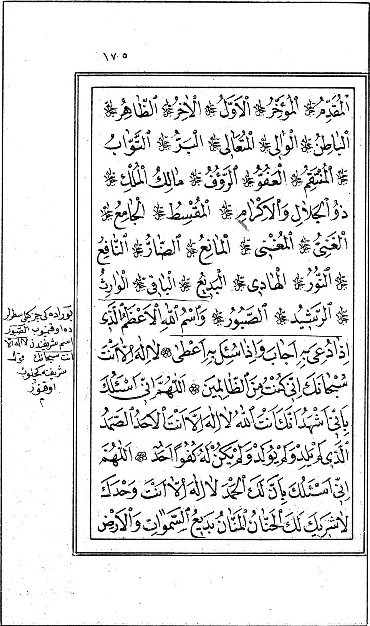 ١٧٥
اَلْمُقَدِّمُ ❋ اَلْمُؤَخِّرُ ❋ اَلْاَوَّلُ ❋ اَلْاٰخِرُ ❋ اَلظَّاهِرُ ❋
اَلْبَاطِنُ ❋ اَلْوَالِى ❋ اَلْمُتَعَالِى ❋ اَلْبَرُّ ❋ اَلتَّوَّابُ
❋ اَلْمُنْتَقِمُ ❋ اَلْعَفُوُّ ❋ اَلرَّؤُفُ ❋ مَالِكُ الْمُلْكِ ❋
ذُو الْجَلَالِ وَالْاِكْرَامِ ❋ اَلْمُقْسِطُ ❋ اَلْجَامِعُ ❋
اَلْغَنِىُّ ❋ اَلْمُغْنِى ❋ اَلْمَانِعُ ❋ اَلضَّارُّ ❋ اَلنَّافِعُ
❋ اَلنُّورُ ❋ اَلْهَادِى ❋ اَلْبَدِيعُ ❋ اَلْبَاقِى ❋ اَلْوَارِثُ
❋ اَلرَّشِيدُ ❋ اَلصَّبُورُ ❋ وَاسْمُ اللّٰهِ الْاَعْظَمُ الَّذِى
اِذَا دُعِىَ بِهِ اَجَابَ وَاِذَا سُئِلَ بِهِ اَعْطٰى ❋ لَا اِلٰهَ اِلَّا اَنْتَ
سُبْحَانَكَ اِنِّى كُنْتُ مِنَ الظَّالِمِينَ ❋ اَللّٰهُمَّ اِنِّى اَسْئَلُكَ
بِاَنِّى اَشْهَدُ اَنَّكَ اَنْتَ اللّٰهُ لَا اِلٰهَ اِلَّا اَنْتَ الْاَحَدُ الصَّمَدُ
الَّذِى لَمْ يَلِدْ وَلَمْ يُولَدْ وَلَمْ يَكُنْ لَهُ كُفُوًا اَحَدٌ ❋ اَللّٰهُمَّ
اِنِّى اَسْئَلُكَ بِاَنَّ لَكَ الْحَمْدَ لَا اِلٰهَ اِلَّا اَنْتَ وَحْدَكَ
لَا شَرِيكَ لَكَ الْحَنَّانُ الْمَنَّانُ بَدِيعُ السَّمٰوَاتِ وَالْاَرْضِ
بوراده كى
اسم شريفدن لا اله الا
انت سبحانك
شريفه
اوقنور